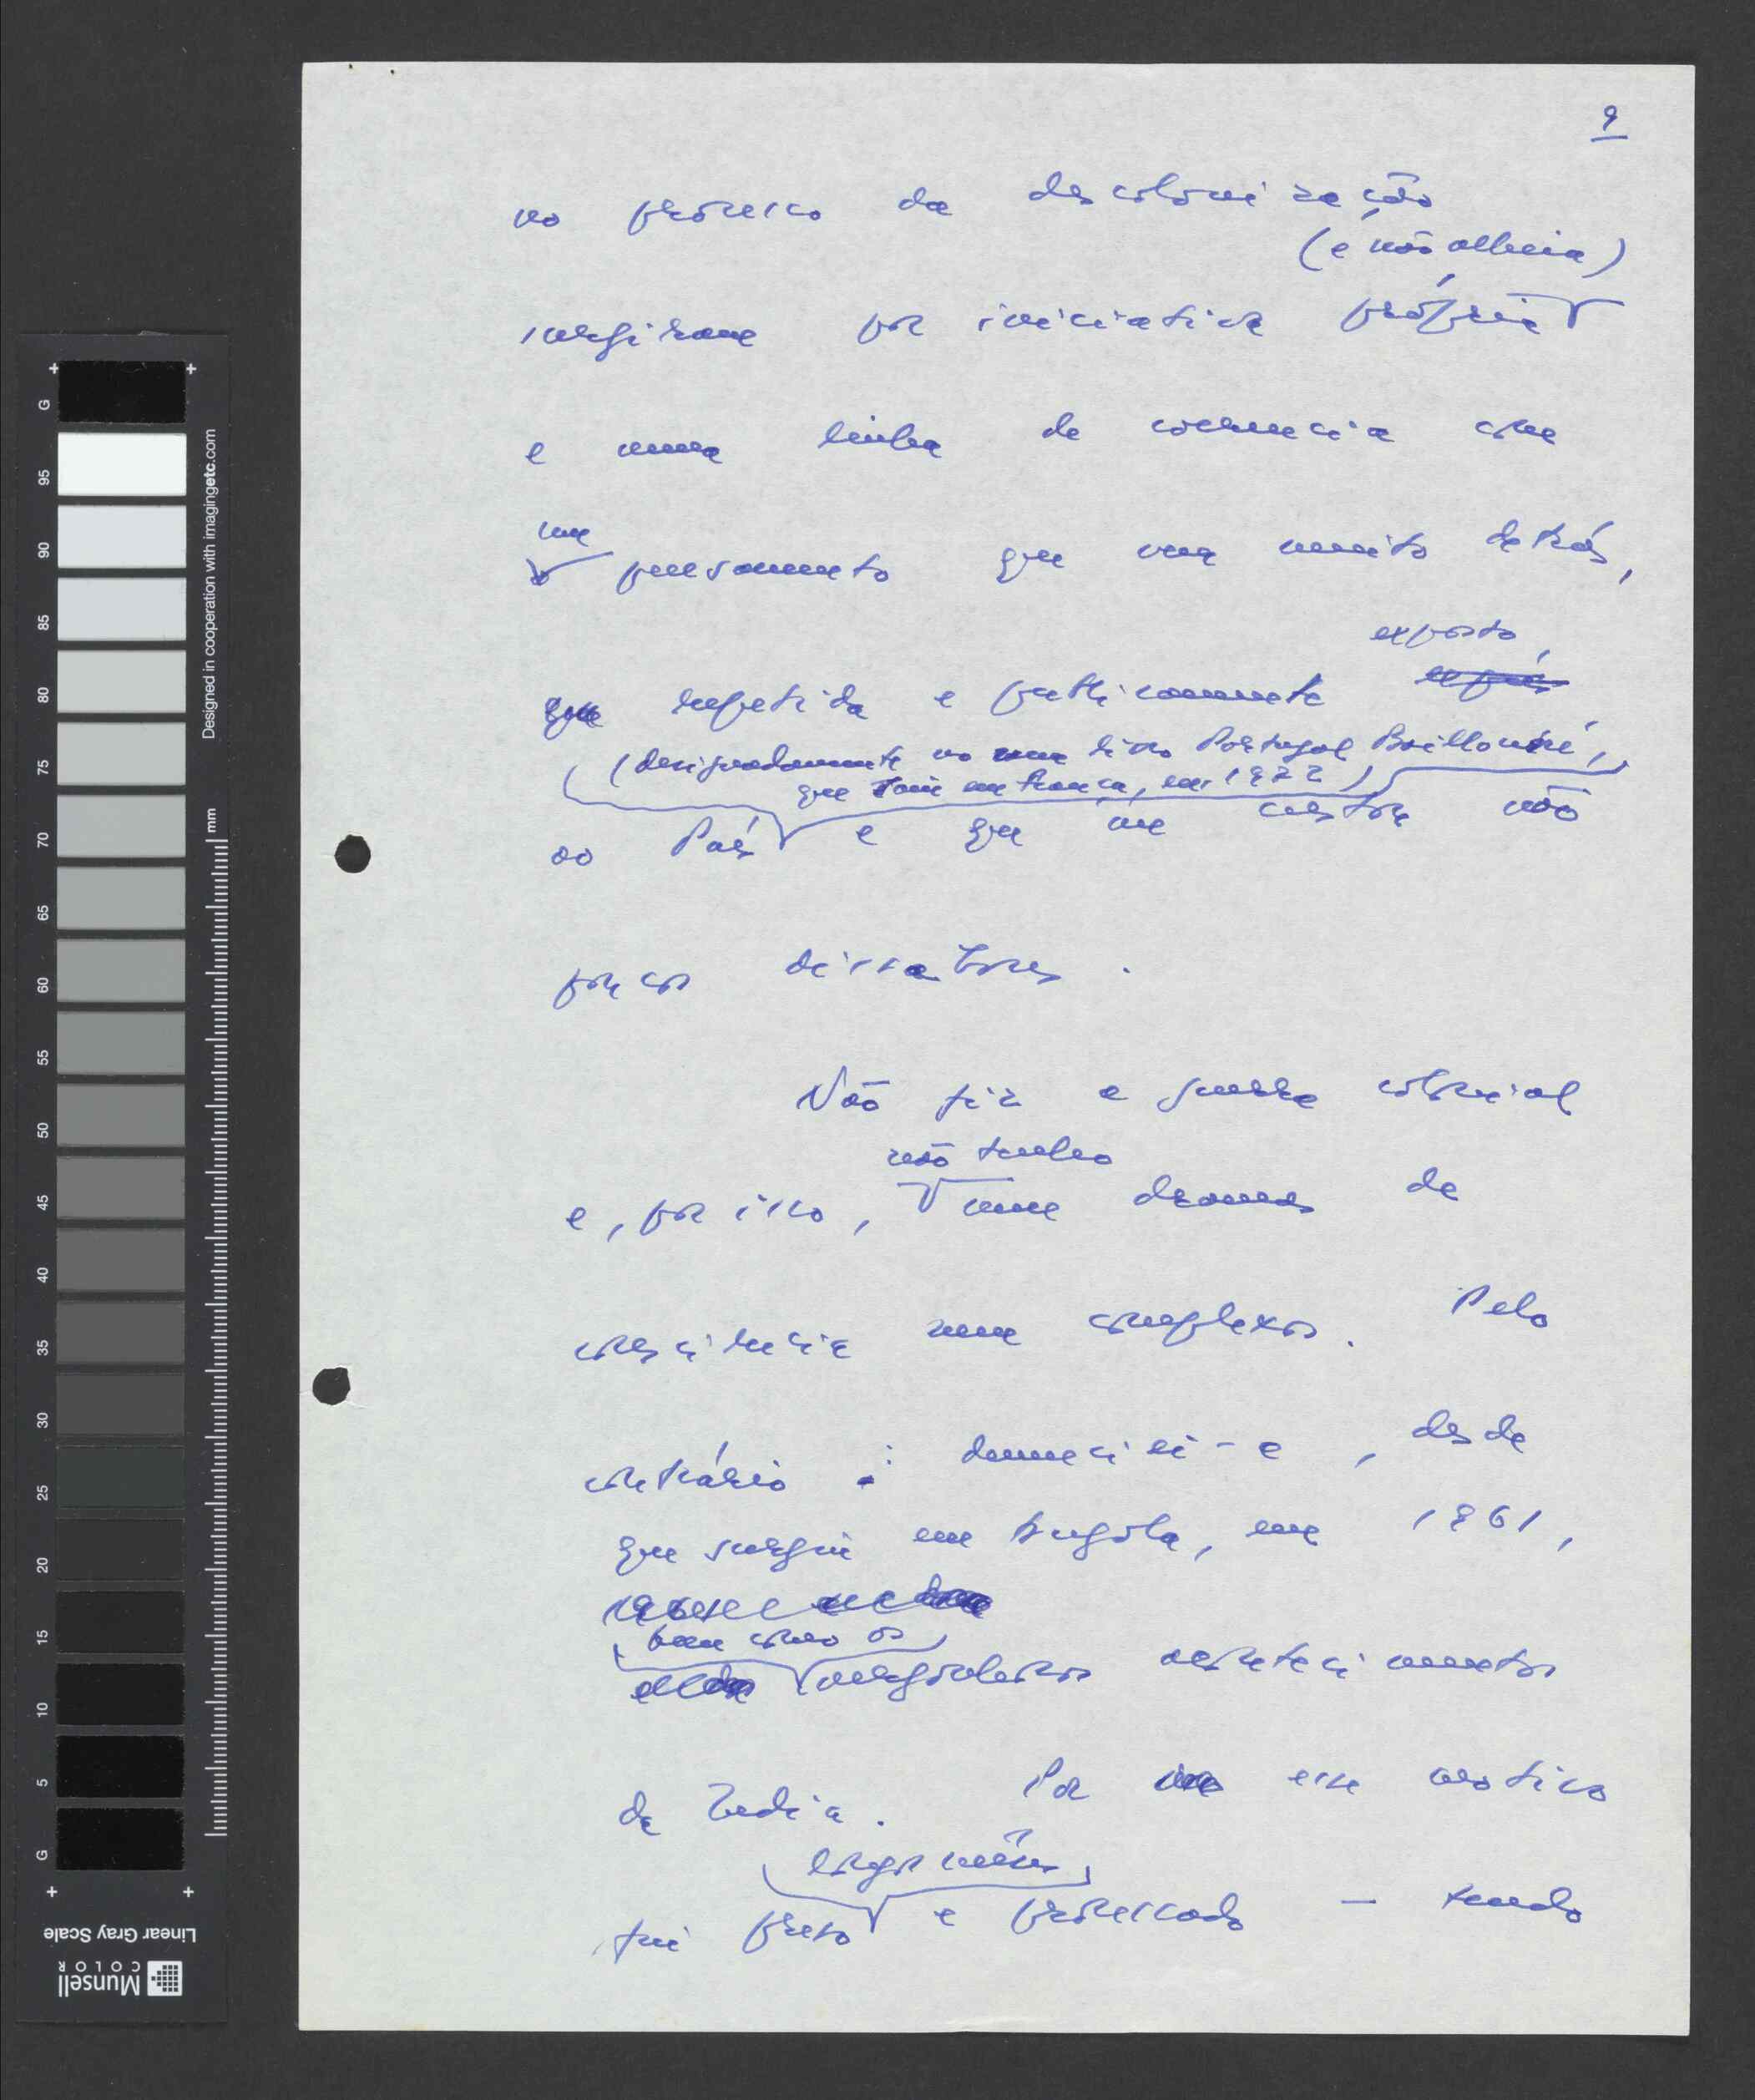 9
no processo da descolonização
(e não alheia)
surgiram por iniciativa própria
e numa linha de coerencia com
um
pensamento que vem muito detrás,
exposto,
que repetida e publicamente expus
(designadamente no meu livro Portugal Baillonné,
que saiu em França, em 1972)
ao País e que me custou não
poucos dissabores.
Não fiz a guerra colonial
não tenho
e, por isso, nem dramas de
consciencia nem complexos. Pelo
contrário: denunciei-a, desde
que surgiu em Angola, em 1961,
bem como os
vergonhosos acontecimentos
da India. Por esse motivo
longos mêses
fui preso e processado — tendo
G
95
90
85
80
75
70
65
60
55
50
45
40
35
30
25
20
15
10
5
G
mm
Designed in cooperation with imagingetc.com
Linear Gray Scale
Munsell
COLOR